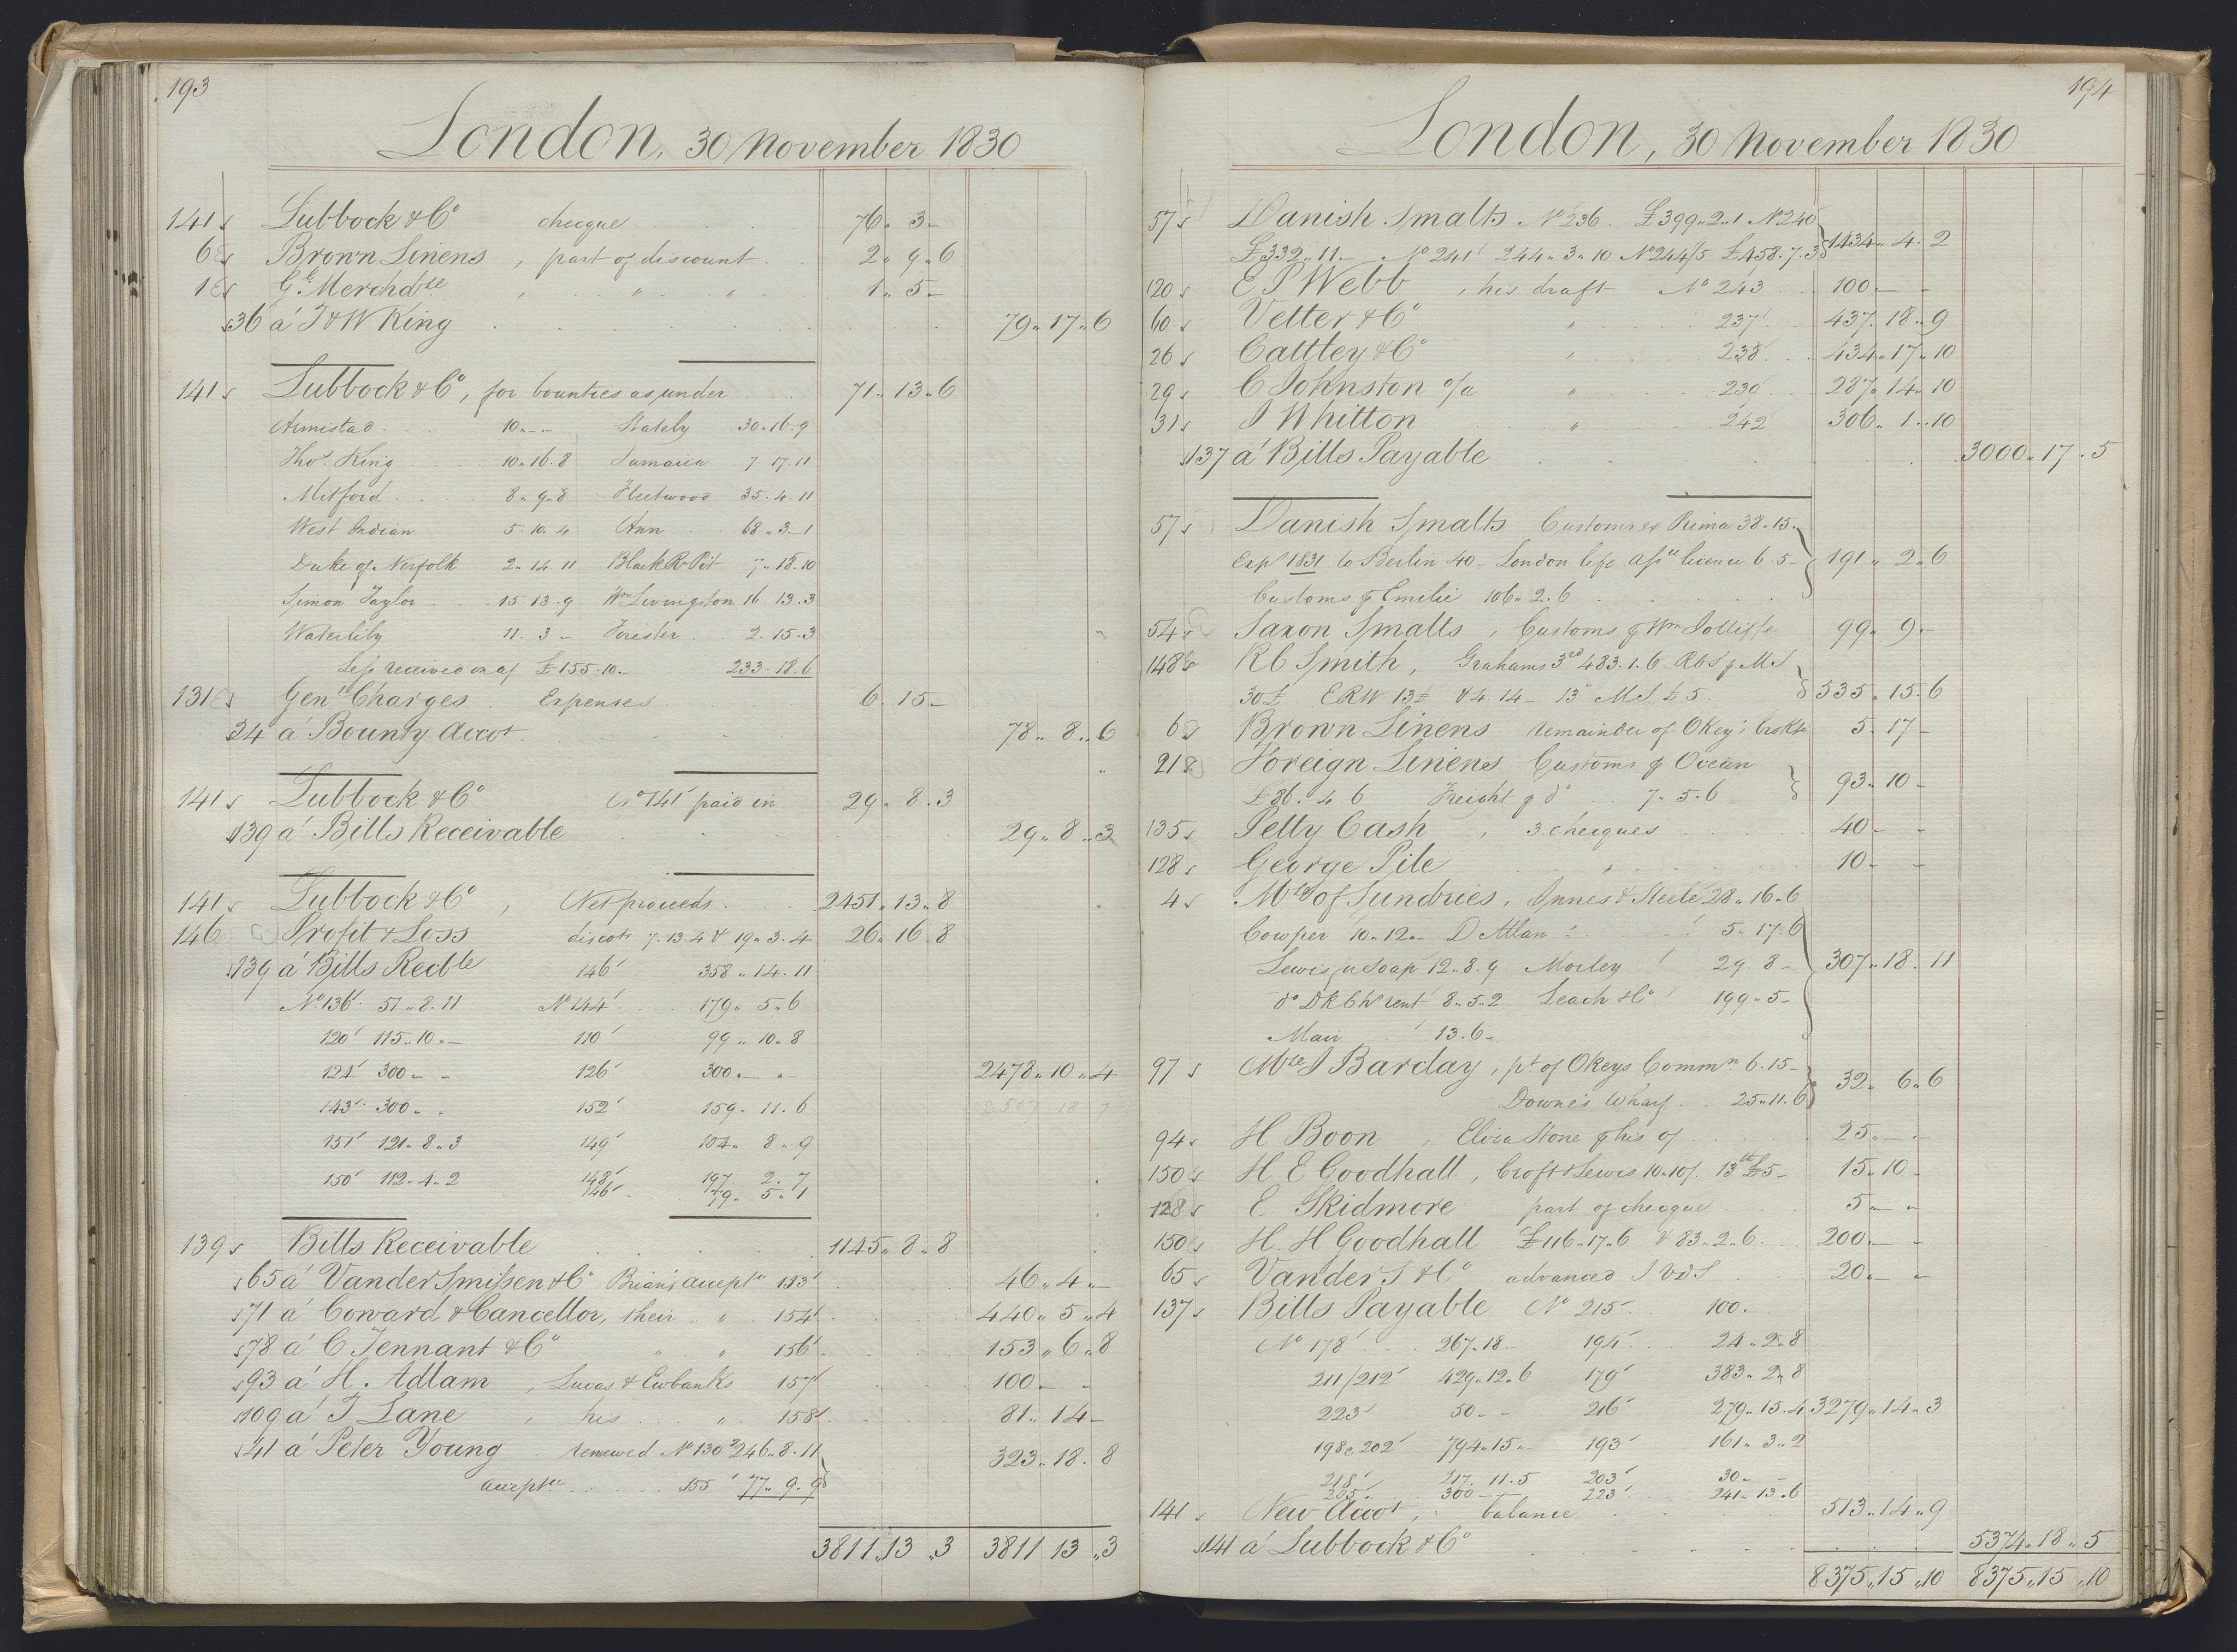 193
London, 30 November 1830
141 Lubbock & Co checque 76 .. 3 –
6 Brown Linens, part of discount 2 .. 9 .. 6
1 Gl Merchdze " " 1 .. 5 –
36 á T & W King 79 .. 17 .. 6
141 Lubbock & Co, for bounties as under 71 .. 13 .. 6
Armistad 10 .. – .. – Stately 30 .. 16 .. 9
Thos King 10 .. 16 . 8 Jamaica 7 . 17 . 11
Mitford 8 .. 9 .. 8 Fleetwood 35 . 4 . 11
West Indian 5 . 10 . 4 Ann 68 .. 3 .. 1
Duke of Norfolk 2 .. 14 . 11 Black R Pit 7 .. 18 . 10
Simon Taylor 15 . 13 . 9 Wm Livingston 16 13 . 3
Waterlily 11 . 3 – Forester 2 . 15 . 3
Less received on a/ £155 . 10 .. – 233 . 18 . 6
131 Genl Charges . Expenses 6 . 15 –
34 á Bounty Accot 78 .. 8 .. 6
141 Lubbock & Co No 141 paid in 29 .. 8 . 3
139 á Bills Receivable 29 .. 8 .. 3
141 Lubbock & Co, Net proceeds 2451 .. 13 .. 8
146 Profit & Loss discots 7 . 13 . 4 & 19 .. 3 . 4 26 .. 16 . 8
139 á Bills Recble 146 358 .. 14 . 11
No 136 51 .. 8 . 11 No 144 179 .. 5 .. 6
120 115 .. 10 .. – 110 99 .. 10 .. 8
121 300 – – 126 300 .. – .. 2478 .. 10 .. 4
143 300 – .. 152 159 . 11 . 6
151 121 .. 8 .. 3 149 104 .. 8 .. 9
150 112 .. 4 .. 2 148 197 . 2 . 7
146 79 .. 5 .. 1
139 Bills Receivable 1145 .. 8 .. 8
65 á Vander Smissen & Co Brian's accepte 153 46 .. 4 .. –
71 á Coward & Cancellor, their " 154 440 .. 5 .. 4
78 á C Tennant & Co " " 156 153 .. 6 .. 8
93 á H. Adlam, Lucas & Ewbanks 157 100 – –
109 á T Lane " his " 158 81 .. 14 –
41 á Peter Young renewed No 130 246 .. 8 . 11 323 .. 18 . 8
accepte 155 77 .. 9 .. 9
3811 .. 13 .. 3 3811 13 .. 3
194
London, 30 November 1830
57 Danish Smalts No 236 . £399 .. 2 .. 1 No 240
£332 .. 11 – No 241 244 .. 3 .. 10 No 244/5 £458 . 7 . 3 1434 .. 4 . 2
120 E P Webb, his draft No 243 100 – –
60 Vetter & Co " 237 437 . 18 .. 9
26 Cattley & Co " 238 434 .. 17 .. 10
29 C Johnston o/a " 239 287 .. 14 .. 10
31 J Whitton " 242 306 .. 1 .. 10
137 á Bills Payable 3000 .. 17 . 5
57 Danish Smalts Customs ex Prima 38 .. 15 –
Exps 1831 to Berlin 40 – London life asse licence 6 . 5 – 191 .. 2 .. 6
Customs p Emilie 106 .. 2 . 6
54 Saxon Smalts, Customs p Wm Jolliffe 99 .. 9 –
148 R C Smith, Grahams 3rd 483 . 1 . 6 . RCS p MS
30£ ERW 13£ & 4 . 14 – 13 MS £5 . 535 .. 15 . 6
6 Brown Linens remainder of Okey's Crokts 5 . 17 –
21 Foreign Linens Customs p Ocean
£86 . 4 6 Freight p do 7 . 5 . 6 93 .. 10 –
135 Petty Cash, 3 checques 40 – –
128 George Pile " 10 – –
4 Mdze of Sundries, Innes & Steele 28 .. 16 .. 6
Cowper 10 .. 12 .. – D Allan 5 .. 17 . 6
Lewis p Soap 12 .. 8 . 9 Morley 29 . 8 – 307 .. 18 . 11
do DK CW rent 8 .. 5 .. 2 Leach & Co 199 .. 5 –
Mair 13 . 6 –
97 Mdze J Barclay, pt of Okeys Commn 6 . 15 –
Downe's Wharf 25 .. 11 . 6 32 .. 6 .. 6
94 H Boon, Elvia Stone p his o/ 25 .. – –
150 H E Goodhall, Croft & Lewis 10 .. 10/. 13th £5 – 15 .. 10 –
128 E Skidmore part of checque 5 – ..
150 H. H Goodhall £116 .. 17 .. 6 & 83 .. 2 .. 6 200 – –
65 Vander S & Co advanced J VdS 20 .. – ..
137 Bills Payable No 215 100 –
No 178 267 .. 18 – 194 24 .. 2 .. 8
211/212 429 .. 12 .. 6 179 383 .. 2 .. 8
223 50 – – 216 279 .. 15 . 4 3279 .. 14 .. 3
198 202 794 .. 15 .. – 193 161 .. 3 .. 2
218 217 .. 11 . 5 203 30 – –
205 300 – – 223 241 .. 13 . 6
141 New Accot, balance 513 .. 14 .. 9
141 á Lubbock & Co 5374 .. 18 .. 5
8375 .. 15 .. 10 8375 .. 15 .. 10